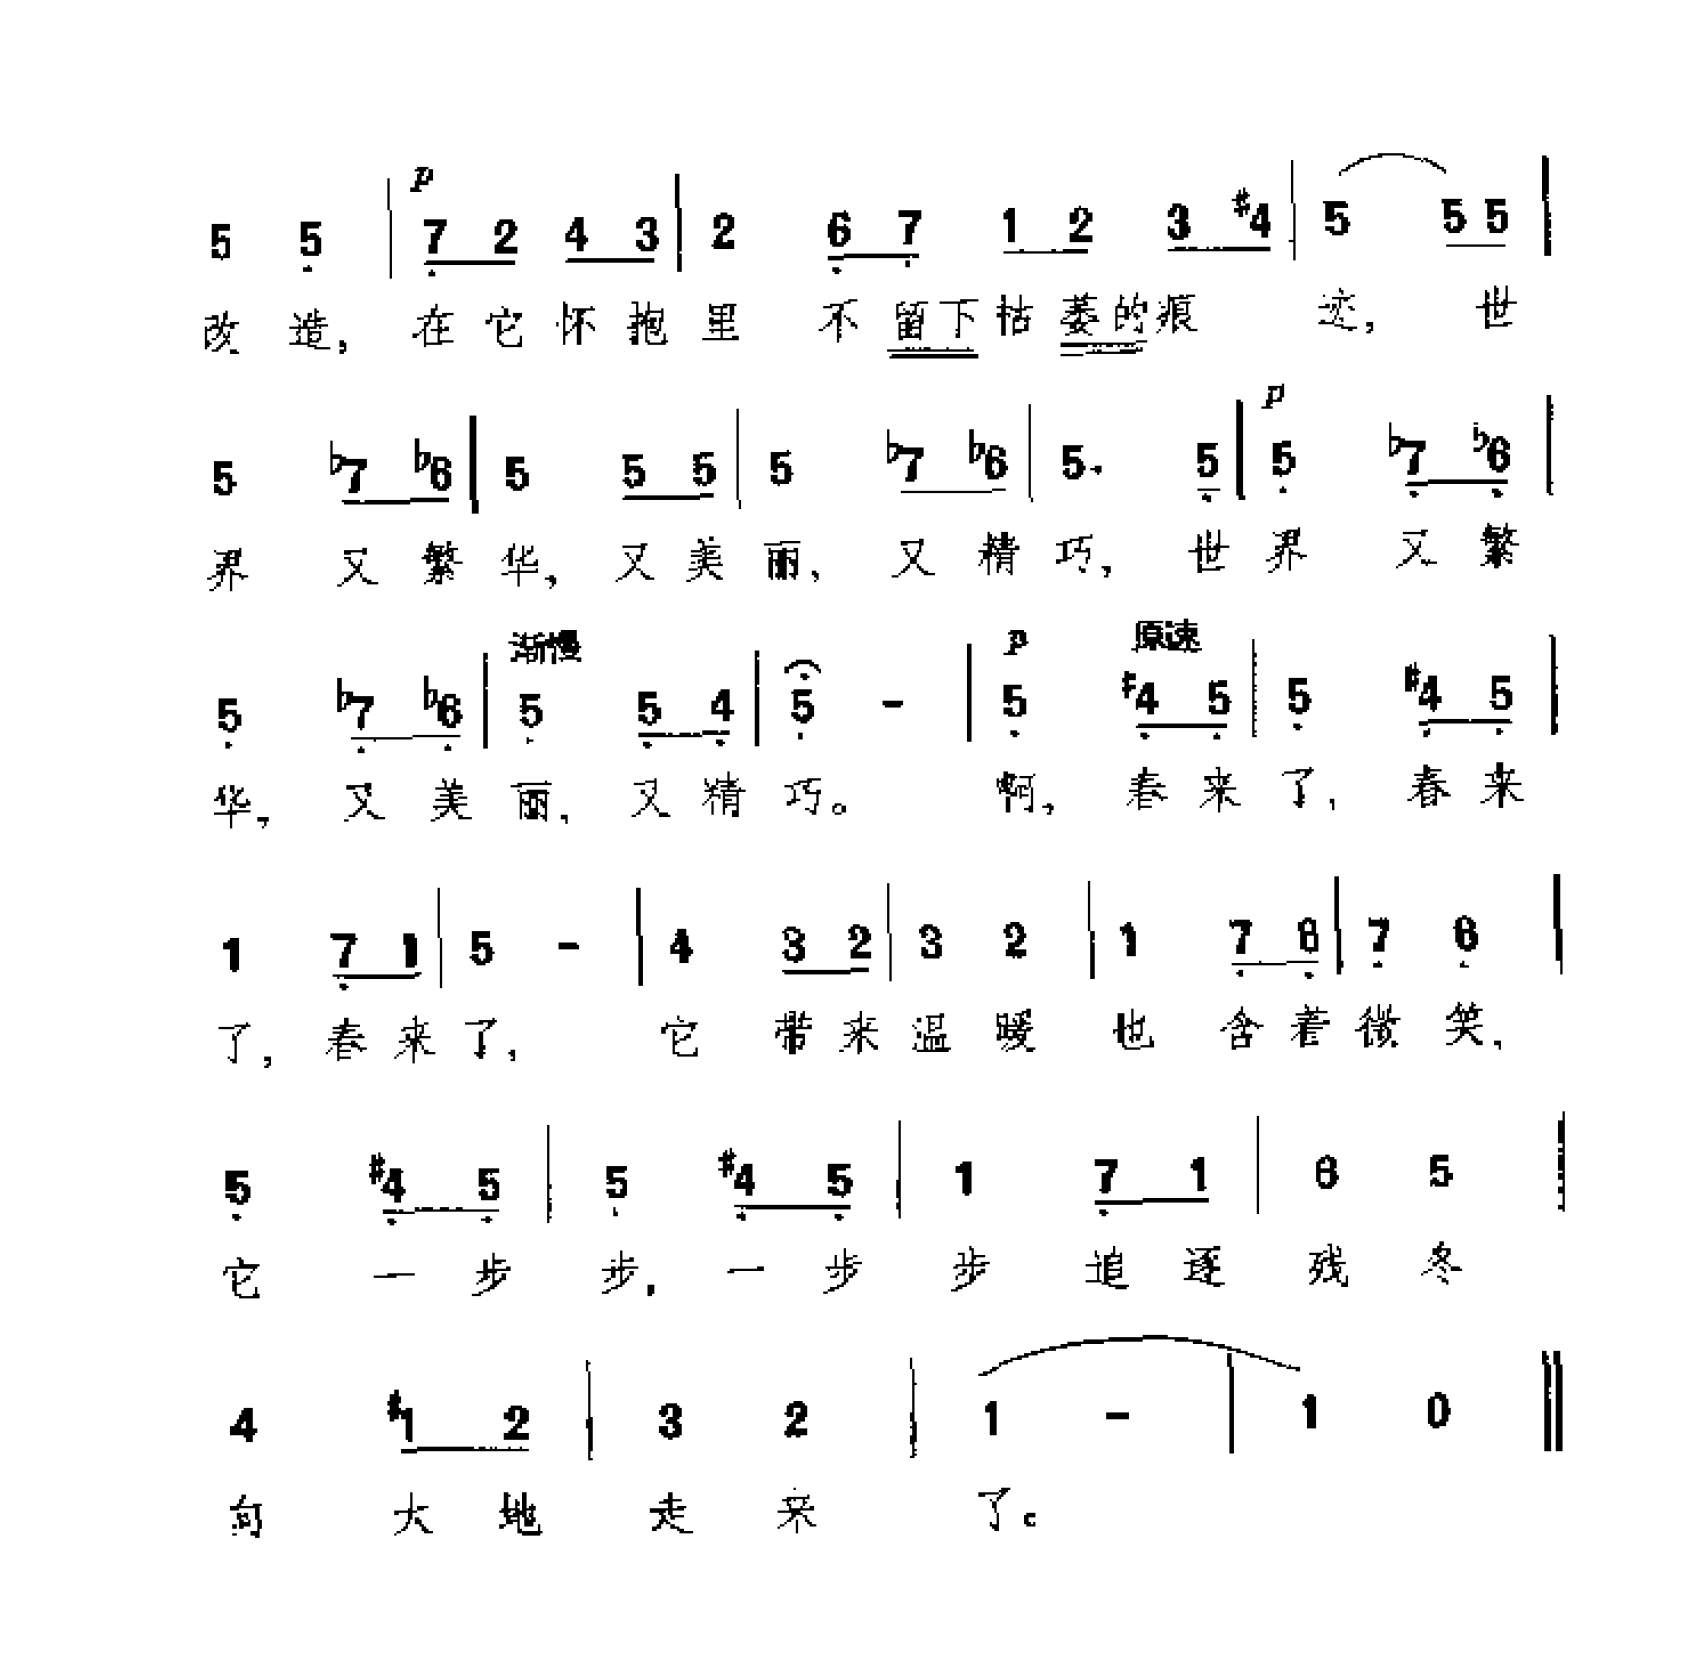 p
5 5̣ | 7̣ 2 4 3 | 2 6̣ 7̣ 1 2 3 #4 | 5 5 5 |
改 造, 在 它 怀 抱 里 不 留下 枯 萎的 痕 迹, 世
p
5 b7 b6 | 5 5 5 | 5 b7 b6 | 5. 5̣ | 5̣ b7̣ b6̣ |
界 又 繁 华, 又 美 丽, 又 精 巧, 世 界 又 繁
渐慢 p 原速
5̣ b7̣ b6̣ | 5̣ 5̣ 4̣ | 5̣ - | 5̣ #4̣ 5̣ | 5̣ #4̣ 5̣ |
华, 又 美 丽, 又 精 巧。 啊, 春 来 了, 春 来
1 7̣ 1 | 5 - | 4 3 2 | 3 2 | 1 7̣ 6̣ | 7̣ 6̣ |
了, 春 来 了, 它 带 来 温 暖 也 含 着 微 笑,
5̣ #4̣ 5̣ | 5̣ #4̣ 5̣ | 1 7̣ 1 | 6 5 |
它 一 步 步, 一 步 步 追 逐 残 冬
4 #1 2 | 3 2 | 1 - | 1 0 ‖
向 大 地 走 来 了。